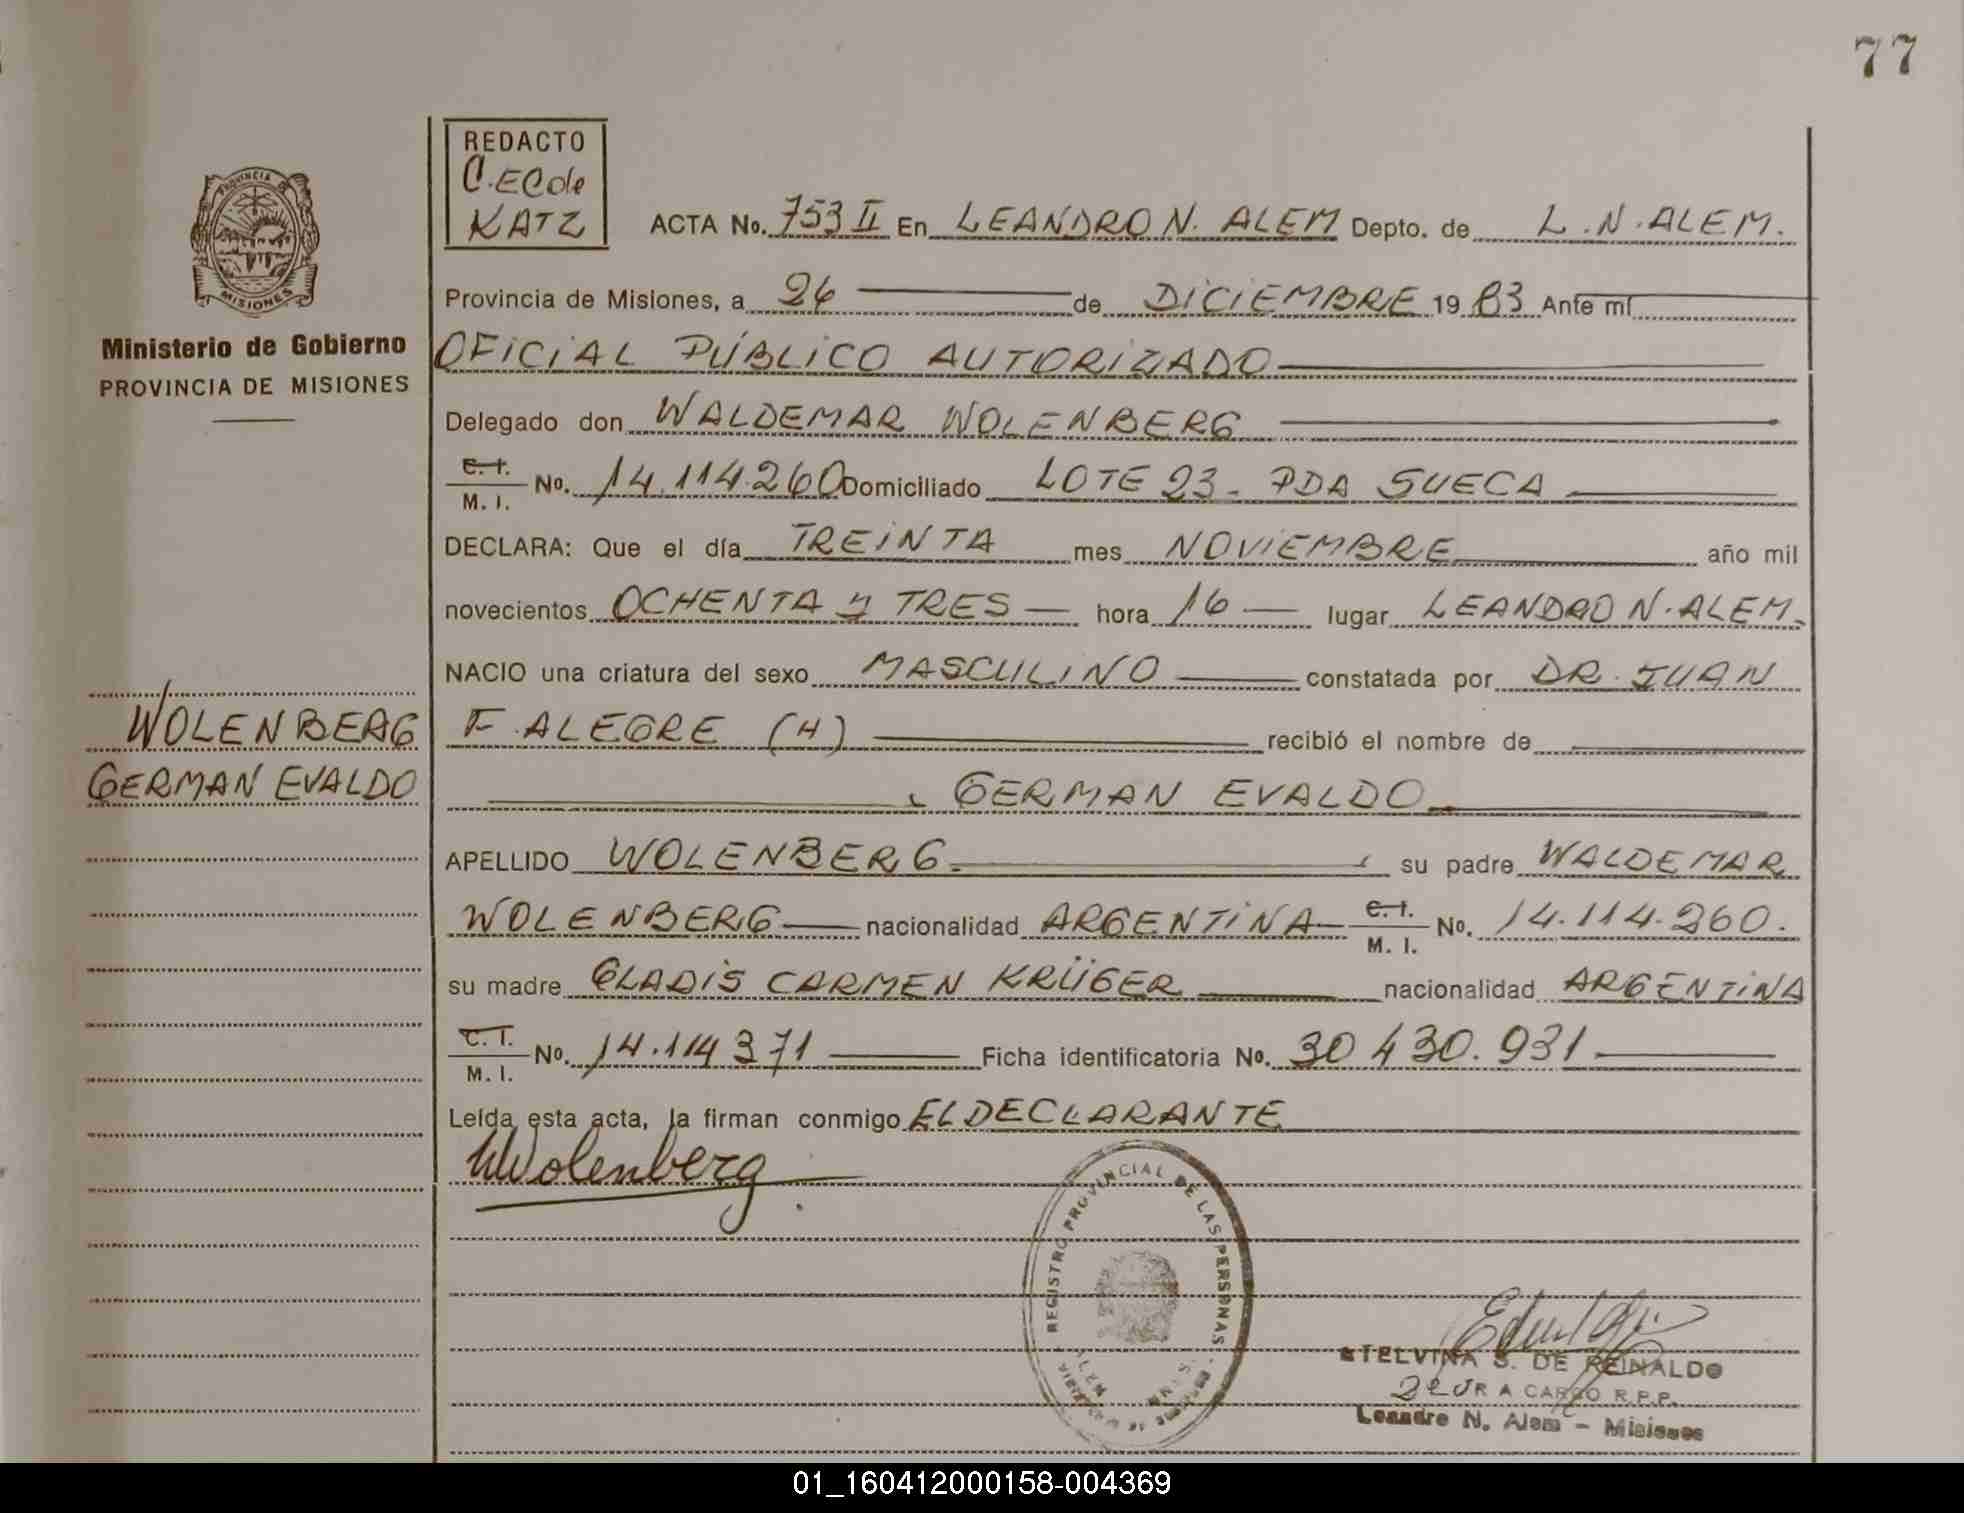 77
REDACTO
C. EC de
KATZ
PROVINCIA DE MISIONES
Ministerio de Gobierno
PROVINCIA DE MISIONES
ACTA No. 753 II En LEANDRO N. ALEM Depto. de L. N. ALEM.
Provincia de Misiones, a 26 de DICIEMBRE 19 83 Ante mí
OFICIAL PÚBLICO AUTORIZADO
Delegado don WALDEMAR WOLENBERG
C. I. / M. I. No. 14.114.260 Domiciliado LOTE 23 - PDA SUECA
DECLARA: Que el día TREINTA mes NOVIEMBRE año mil
novecientos OCHENTA y TRES hora 16 lugar LEANDRO N. ALEM.
NACIO una criatura del sexo MASCULINO constatada por DR. JUAN
F. ALEGRE (H) recibió el nombre de
GERMAN EVALDO
APELLIDO WOLENBERG su padre WALDEMAR
WOLENBERG nacionalidad ARGENTINA C. I. / M. I. No. 14.114.260.
su madre GLADIS CARMEN KRÜGER nacionalidad ARGENTINA
C. I. / M. I. No. 14.114 371 Ficha identificatoria No. 30 430.931
Leída esta acta, la firman conmigo EL DECLARANTE
WOLENBERG
GERMAN EVALDO
WWolenberg
REGISTRO PROVINCIAL DE LAS PERSONAS
ETELVINA S. DE REINALDO
A CARGO R.P.P.
Leandro N. Alem - Misiones
01_160412000158-004369